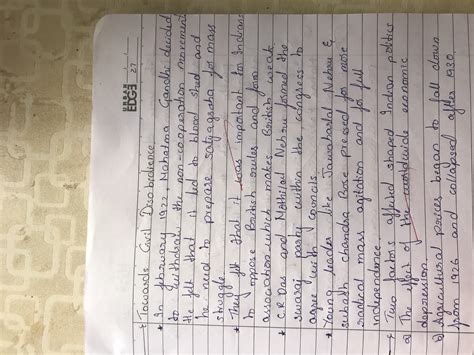 URBAN
EDGE
27
Towards Civil Disobidience.
★ In february 1922, Mahatma Gandhi decided
to withdraw the non-cooperation movement
He felt that it led to blood shed and
he need to prepare satyagraha for mass
struggle.
★ They felt that it was important for Indians
to oppose British rules and form
association which makes British weak.
★ C.R Das and Mothilal Nehru formed the
swaraj party within the congress to
agree with councils
★ Young leaders like Jawaharlal Nehru &
subash chandra Bose pressed for more
radical mass agitation and for full
independence.
★ Two factors affeind shaped Indian politics
a) The effect of the worldwide economic
depression.
b) Agricultural prices began to fall down
from 1926 and collapsed after 1930